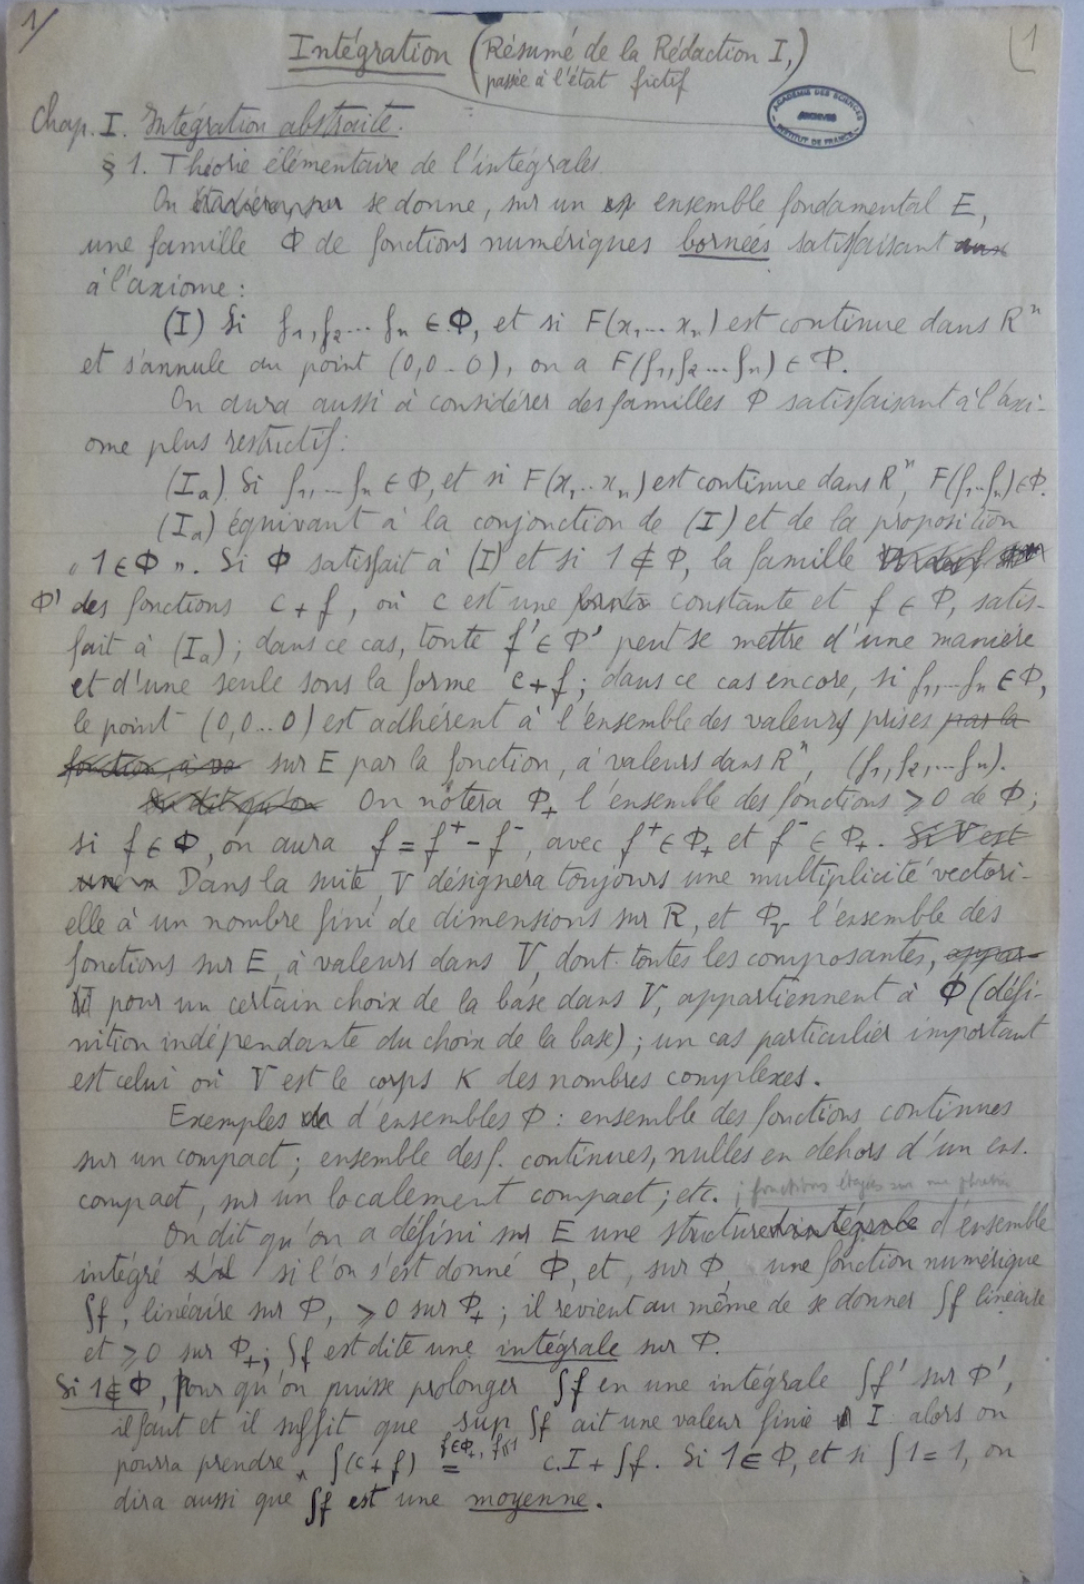 1/
1
Intégration (Résumé de la Rédaction I,)
passée à l'état fictif
ACADEMIE DES SCIENCES
ARCHIVES
INSTITUT DE FRANCE
Chap. I. Intégration abstraite.
§ 1. Théorie élémentaire de l'intégrales.
On se donne, sur un ensemble fondamental E,
une famille Φ de fonctions numériques bornées satisfaisant aux
à l'axiome :
(I) Si f₁, f₂ ... fₙ ∈ Φ, et si F(x₁ ... xₙ) est continue dans Rⁿ
et s'annule au point (0,0 .. 0), on a F(f₁, f₂ ... fₙ) ∈ Φ.
On aura aussi à considérer des familles Φ satisfaisant à l'axi-
ome plus restrictif :
(Iₐ) Si f₁, ... fₙ ∈ Φ, et si F(x₁ .. xₙ) est continue dans Rⁿ, F(f₁ .. fₙ) ∈ Φ.
(Iₐ) équivaut à la conjonction de (I) et de la proposition
« 1 ∈ Φ ». Si Φ satisfait à (I) et si 1 ∉ Φ, la famille
Φ' des fonctions c + f, où c est une constante et f ∈ Φ, satis-
fait à (Iₐ) ; dans ce cas, toute f' ∈ Φ' peut se mettre d'une manière
et d'une seule sous la forme c + f ; dans ce cas encore, si f₁, ... fₙ ∈ Φ,
le point (0,0 ... 0) est adhérent à l'ensemble des valeurs prises par la
fonction, à va sur E par la fonction, à valeurs dans Rⁿ, (f₁, f₂, ... fₙ).
On dit qu'on On notera Φ₊ l'ensemble des fonctions ⩾ 0 de Φ ;
si f ∈ Φ, on aura f = f⁺ - f⁻, avec f⁺ ∈ Φ₊ et f⁻ ∈ Φ₊. Si V est
une Dans la suite, V désignera toujours une multiplicité vectori-
elle à un nombre fini de dimensions sur R, et Φᵥ l'ensemble des
fonctions sur E, à valeurs dans V, dont toutes les composantes, appar-
pour un certain choix de la base dans V, appartiennent à Φ (défi-
nition indépendante du choix de la base) ; un cas particulier important
est celui où V est le corps K des nombres complexes.
Exemples de d'ensembles Φ : ensemble des fonctions continues
sur un compact ; ensemble des f. continues, nulles en dehors d'un ens.
compact, sur un localement compact ; etc. ; fonctions étagées sur une
On dit qu'on a défini sur E une structure d'intégrale d'ensemble
intégré s'il si l'on s'est donné Φ, et, sur Φ, une fonction numérique
∫f, linéaire sur Φ, ⩾ 0 sur Φ₊ ; il revient au même de se donner ∫f linéaire
et ⩾ 0 sur Φ₊ ; ∫f est dite une intégrale sur Φ.
Si 1 ∉ Φ, pour qu'on puisse prolonger ∫f en une intégrale ∫f' sur Φ',
il faut et il suffit que sup ∫f ait une valeur finie I alors on
f∈Φ₊, f⩽1
pourra prendre ∫(c + f) = c.I + ∫f. Si 1 ∈ Φ, et si ∫1 = 1, on
dira aussi que ∫f est une moyenne.